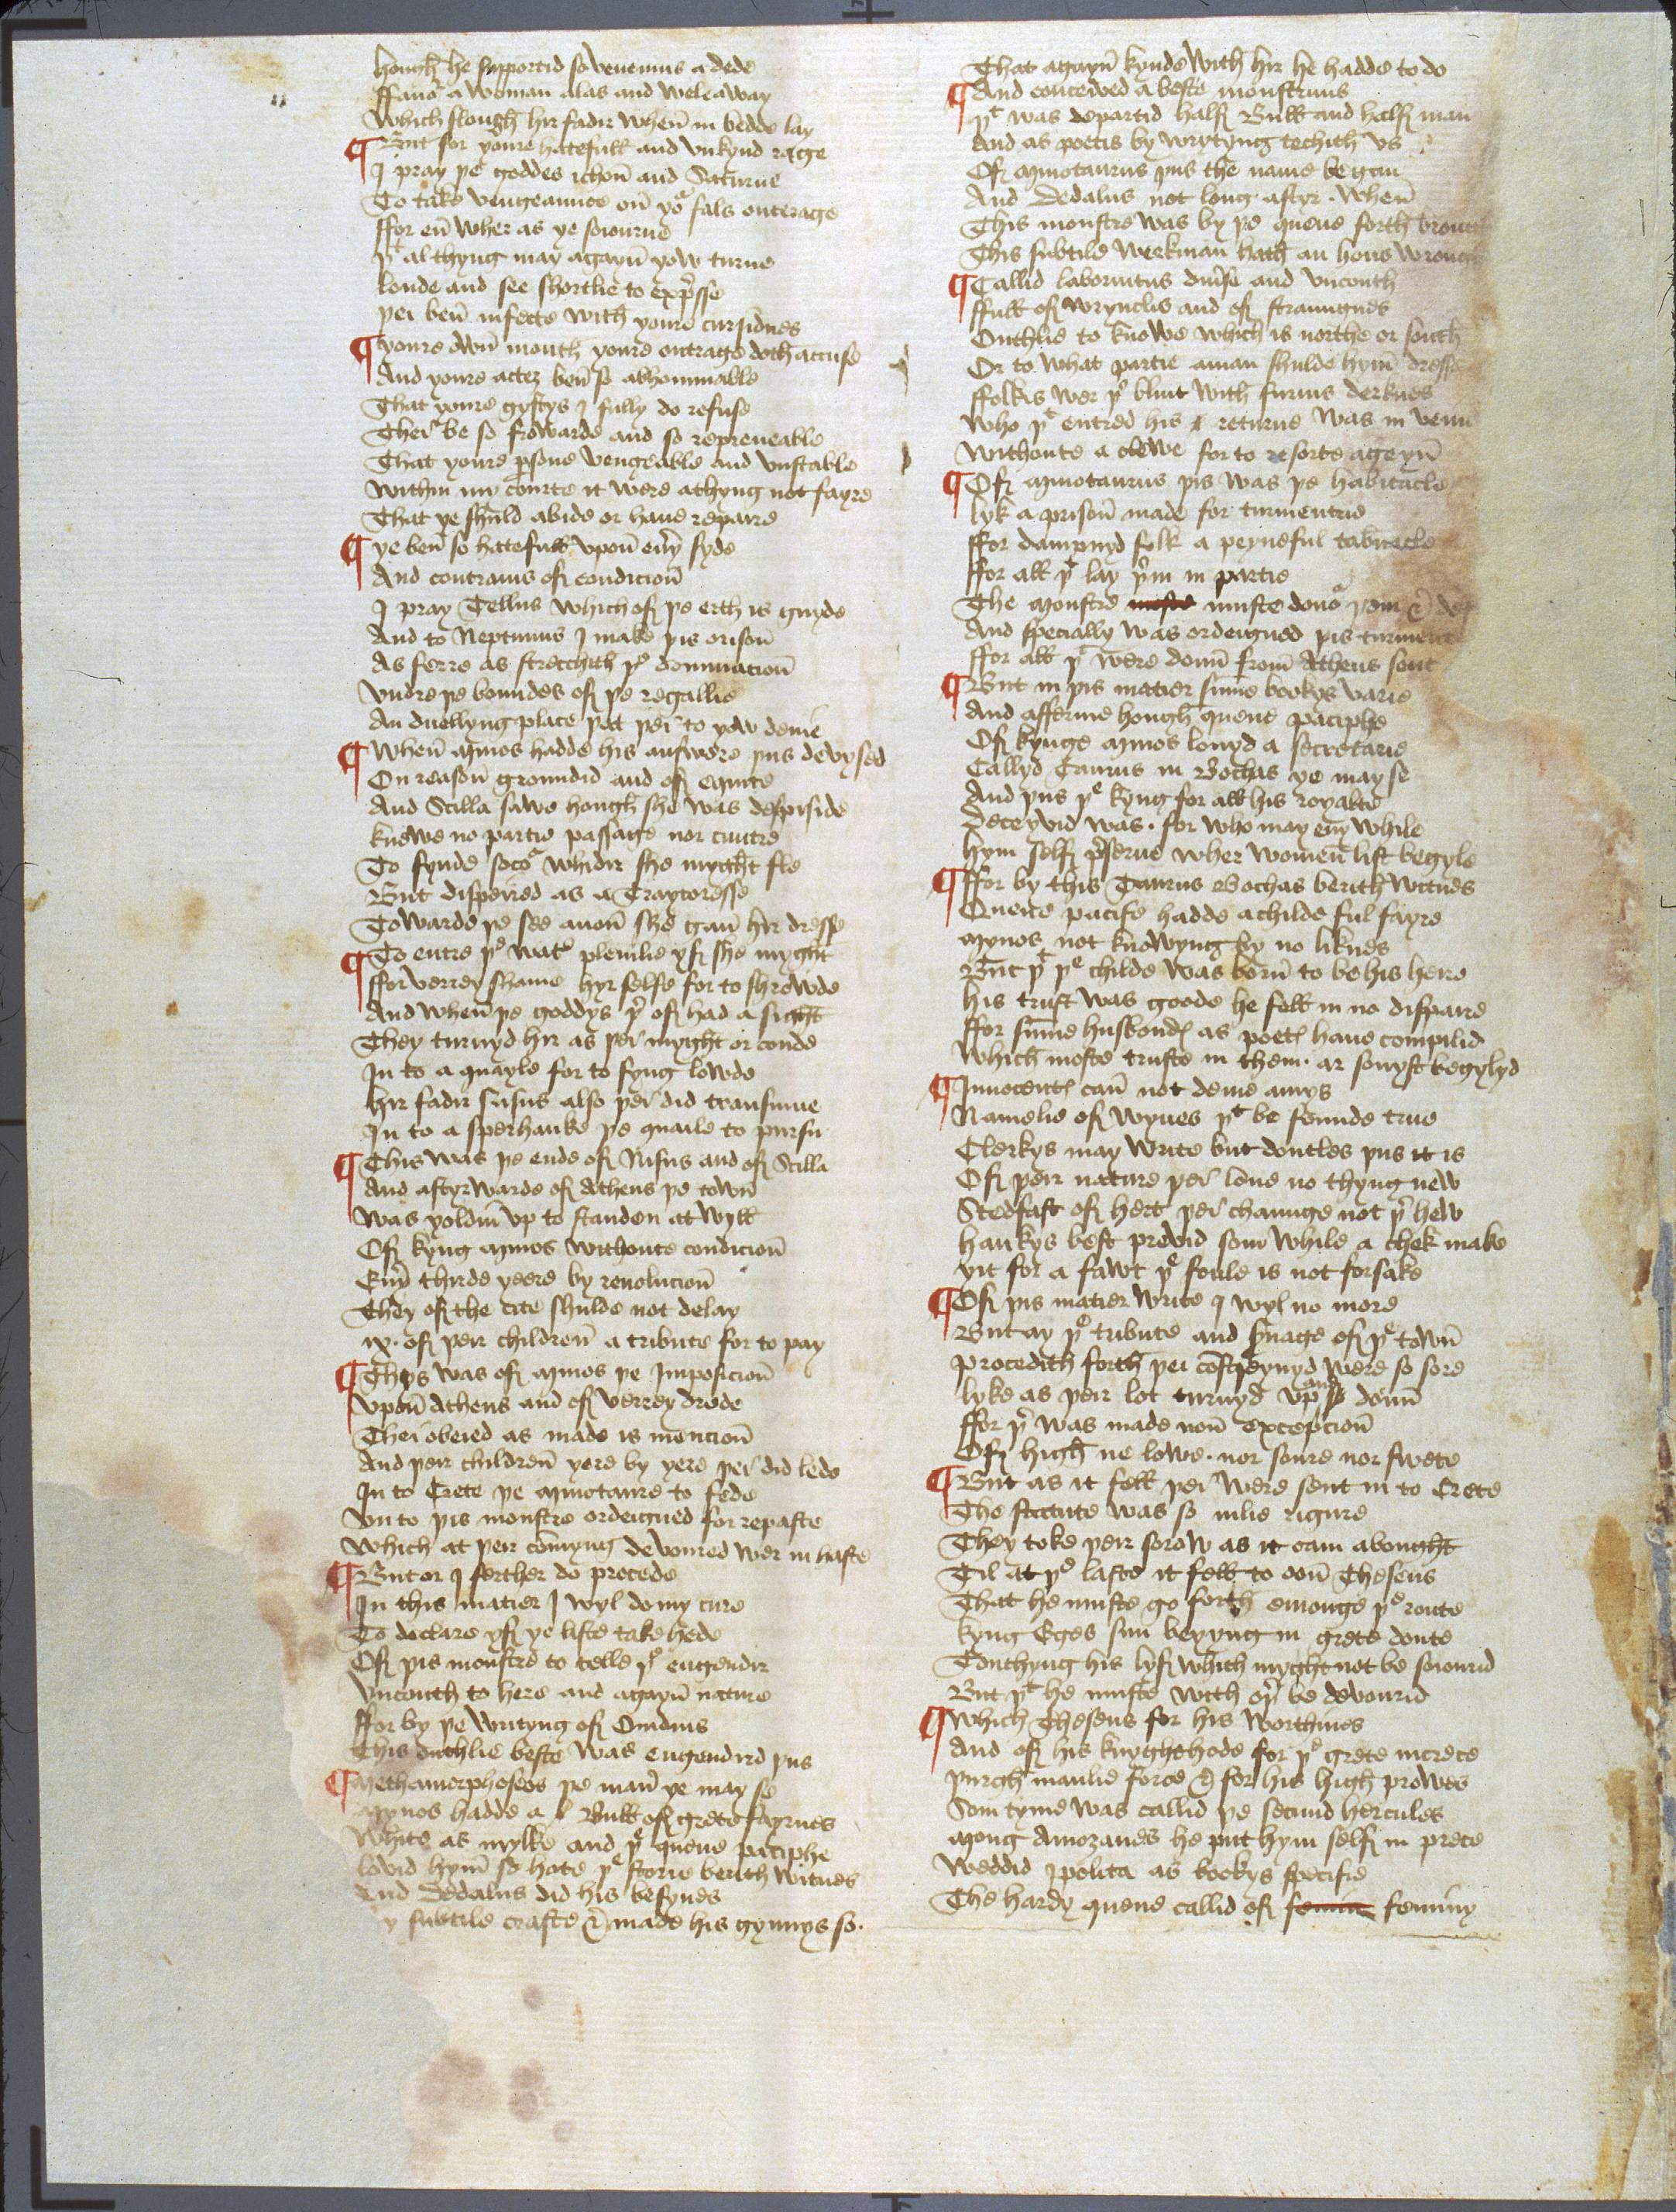 hough he supportid so venemus a dede
ffauoʳ a woman alas and weleaway
Which slough hir fadir when in bedde lay
¶ But for youre hatefull and vnkynd rage
I pray þe goddes ichon and Saturne
To take vengeaunce on yoʳ fals outerage
ffor eny wher as ye soiourne
þᵗ al thyng may agayn yow turne
londe and see shortlie to expresse
þei ben infecte with youre cursidnes
¶ youre own mouth youre outrage doth accuse
And youre actez ben so abhominable
That youre gyftys I fully do refuse
Thei be so frowarde and so repreueable
That youre psone vengeable and vnstable
within my courte it were a thyng not fayre
That ye shuld abide or haue repaire
¶ ye ben so hatefull vpon eny syde
And contraius of condicion
I pray Tellus which of þe erth is guyde
And to Neptunus I make þis orison
As ferre as strecchith þᵉ dominacion
vndre þe boundes of þe regallie
An duellyng place þᵗ þei to yow denie
¶ When mynos hadde his answere þus devysed
On reason groundid and of equite
And Scilla sawe hough she was despiside
knowe no partie passage nor cuntre
To fynde socoʳ whidir she myght fle
But dispeired as a Traytoresse
Towarde þe see anon she gan hir dresse
¶ To entre þᵉ watʳ pleinlie yf she myght
ffor verrey shame hyr selfe for to shrowde
And when þe goddys þʳ of had a sight
They turnyd hir as þei myght or coude
In to a quayle for to syng lowde
hir fadir Nisus also þei did transmue
In to a sperhauke þe quaile to pursu
¶ This was þe ende of Nisus and of Scilla
And aftyrwarde of Athens þe town
Was yoldin vp to standen at wyll
Of kyng mynos withoute condicion
Euy thirde yeere by reuolucion
They of the cite shulde not delay
ix. of þeir children a tribute for to pay
¶ Thys was of mynos þe Imposicion
vpon Athens and of verrey drede
Thei obeied as made is mencion
And þeir children yere by yere þei did lede
In to Crete þe mynotaure to fede
vn to þis monstre ordeigned for repaste
which at þeir comyng devoured wer in haste
¶ But or I ferther do procede
In this matier I wyl do my cure
To declare yf ye liste take hede
Of þis monstre to telle þᵉ engendir
vncouth to here and agayn nature
ffor by þe writyng of Ouidius
This duthlie beste was engendrd þus
¶ Methamorphoseos þe maner ye may se
Mynos hadde a Bull of grete fayrnes
White as mylke and þᵉ quene paciphe
lovid hym so hote þᵉ storie berith witnes
And Dedalus did his besynes
y subtile crafte & made his gynnys so.
That agayn kynde with hir he hadde to do
¶ And conceived a beste monstrus
þᵗ was departid half Bull and half man
And as poetis by wrytyng techith vs
Of mynotaurus þus the name began
And Dedalus not long aftyr. When
This monstre was by þe quene forth brought
This subtile werkman hath an hous wrought
¶ Callid laborintus diuse and vncouth
ffull of wrynclis and of straungnes
Onthlie to knowe which is northe or south
Or to what partie a man shulde hym dresse
ffolkis wer þʳ blint with furius derknes
Who þᵗ entred his returne was in veine
withoute a clewe for to resorte ageyn
¶ Of mynotaurus þis was þe habitacle
lyk a prison made for turmentrie
ffor dampnyd folk a peyneful tabnacle
ffor all þᵗ lay þʳin in partie
The monstre moste muste deuoʳ þem & def
And specially was ordeigned þis turment
ffor all þᵗ were doun from Athens sent
¶ But in þis matier summe bookys varie
And afferme hough quene paciphe
Of kynge mynos louyd a secretarie
Callyd Taurus in Bochas ye may se
And þus þᵉ kyng for all his royalte
Deceyvid was. for who may eny while
hym self pserue wher women list begyle
¶ ffor by this Taurus Bochas berith witnes
Quene pacife hadde a childe ful fayre
mynos not knowyng by no liknes
But þᵗ þᵉ childe was born to be his heire
his trust was goode he fell in no dispaire
ffor summe husbondes as poetes haue compilid
Which moste truste in them. ar sonyst begylyd
¶ Innocentes can not deme amys
Namelie of wyues þᵗ be founde true
Clerkys may write but doutles þus it is
Of þeir nature þei loue no thyng new
Stedfast of hert þei chaunge not þʳ hew
haukys best previd som while a chek make
yit for a fawt þᵉ foule is not forsake
¶ Of þis matier write I wyl no more
But ay þᵉ tribute and suage of þᵉ town
procedith forth þei constreynyd were so sore
lyke as þeir lot turnyd vp and doun
ffor þʳ was made non excepcion
Of high ne lowe. nor soure nor swete
¶ But as it fell þei were sent in to Crete
The statute was so inlie rigure
They toke þeir sorow as it cam abought
Til at þᵉ laste it fell to oon Theseus
That he muste go forth emonge þᵉ route
kyng Eges sun beyyng in grete doute
Touthyng his lyf which myght not be soiourid
But þᵗ he muste with oþʳ be devourid
¶ which Theseus for his worthines
And of his knyghthode for þᵉ grete increce
þurgh manlie force & for his high prowes
Som tyme was callid þe secund hercules
Mong Amozanes he put hym self in prece
Weddid ipolita as bookys specifie
The hardy quene callid of femine feminy